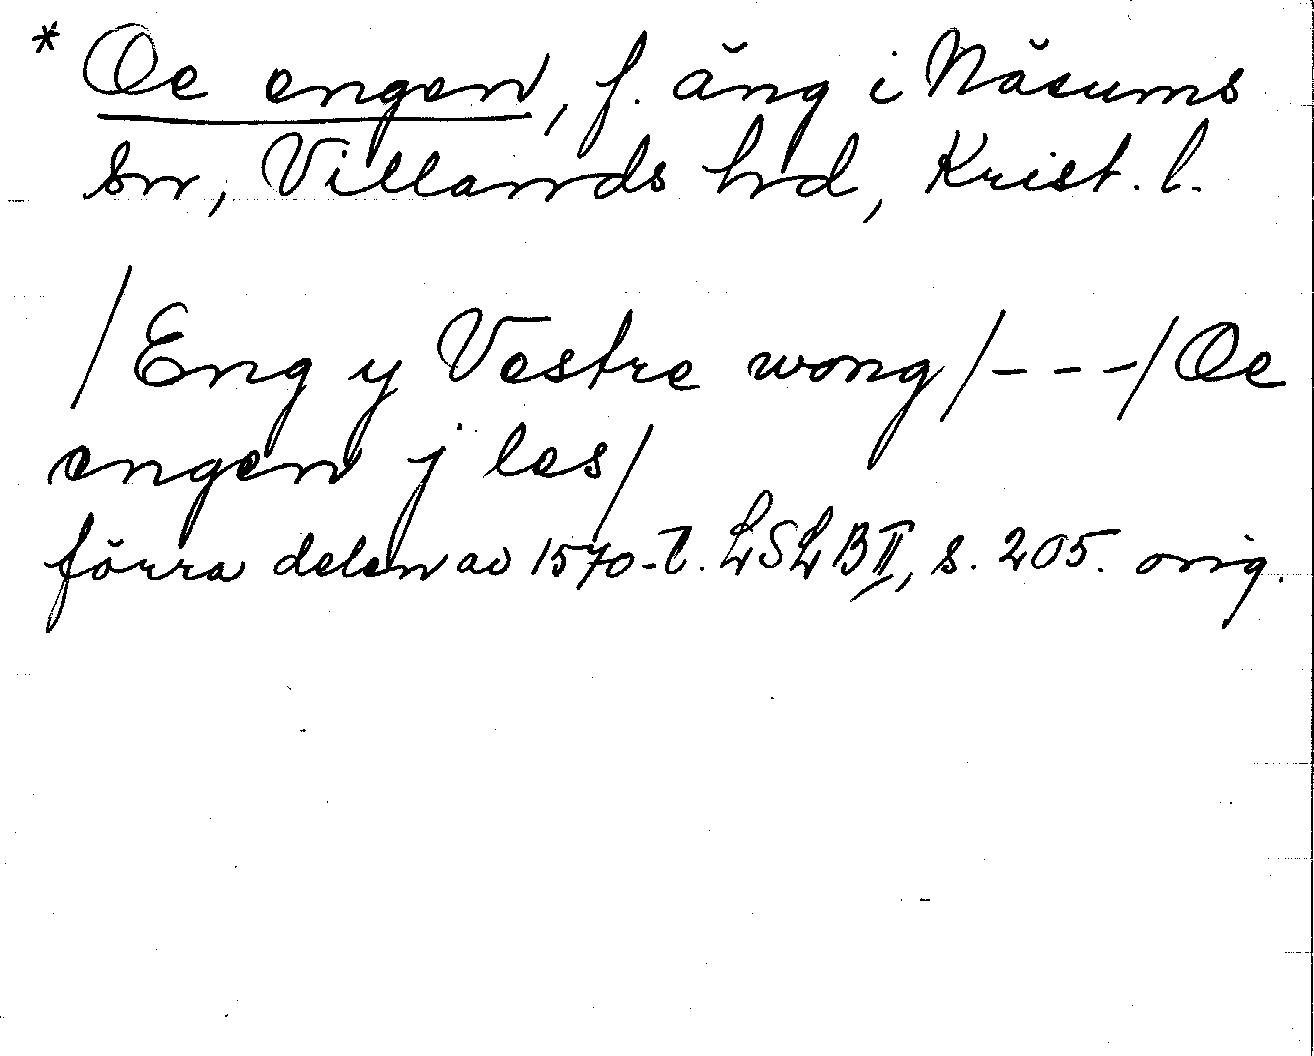 * Oe engen, f. äng i Näsums
sn, Villands hd, Krist. l.
/Eng y Vestre wong/---/Oe
engen j les/
förra delen av 1570-t. LSLB II, s. 205. orig.